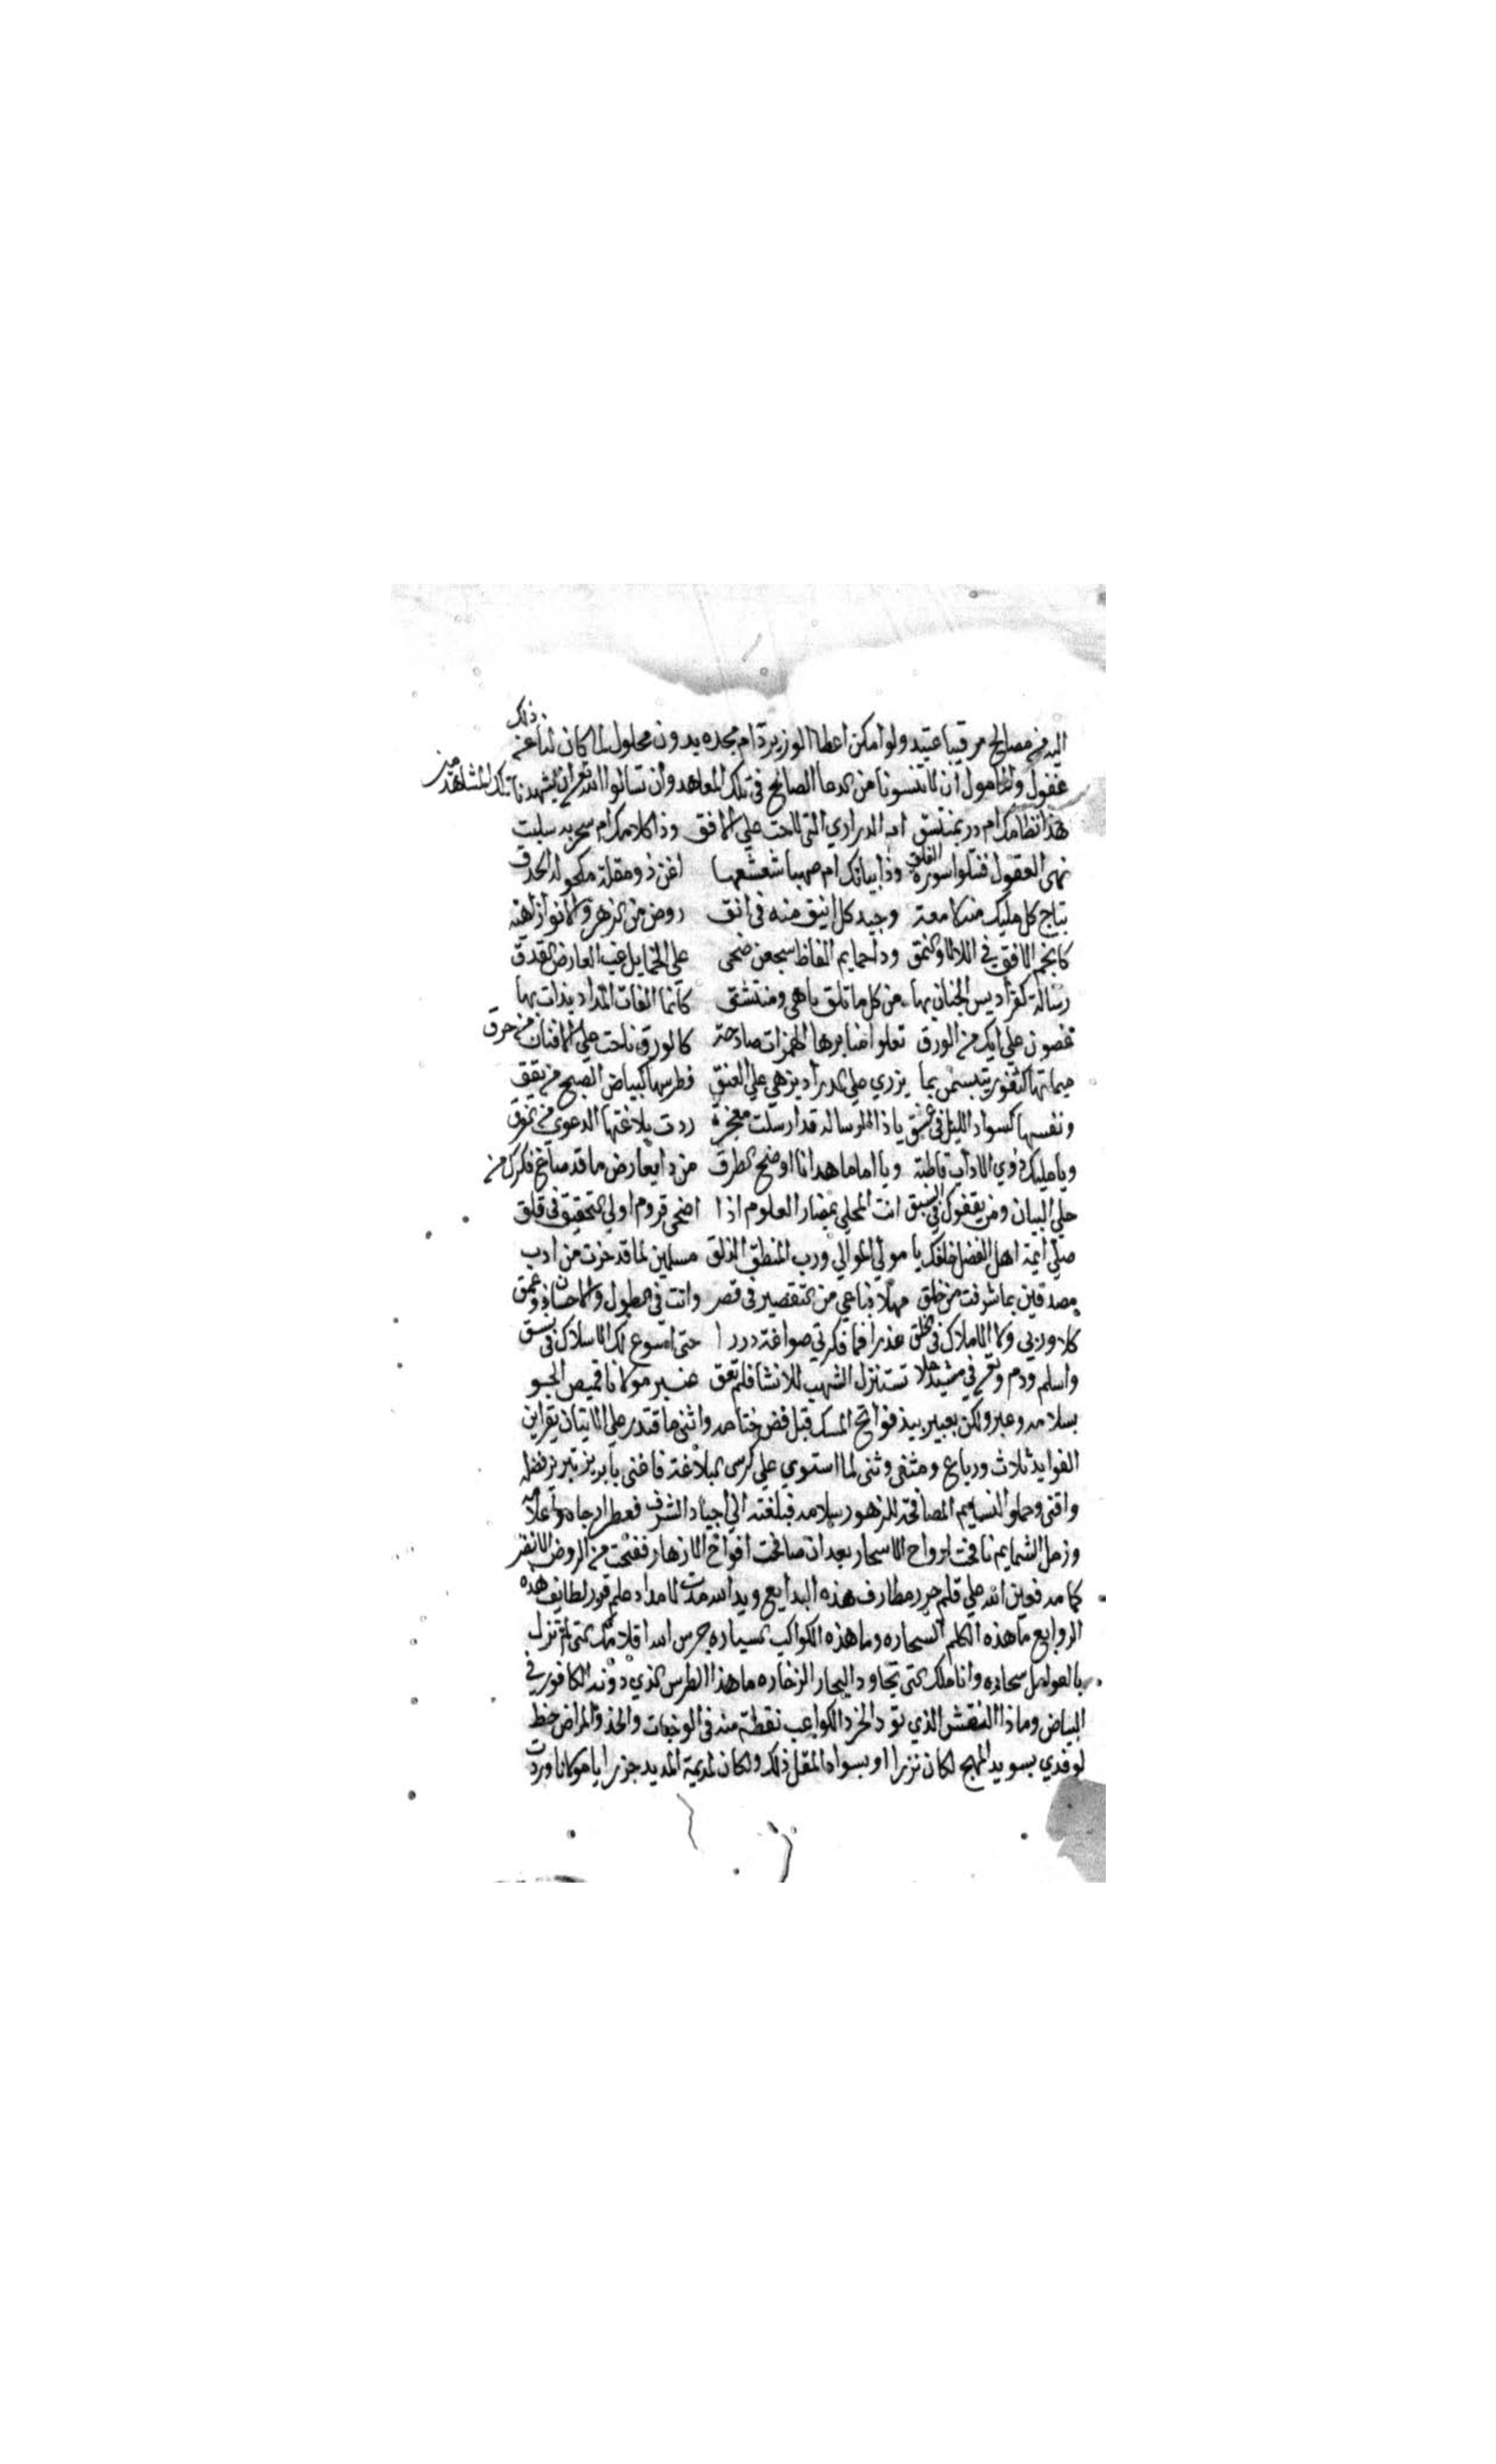 اليه من مصالح مرقبا عتيد ولو امكن اعطا الوزير دام مجده بدون محلول لما كان لنا عن ذلك
غفول والمامول ان لا تنسونا من الدعا الصالح في تلك المعاهد وان تسالوا الله تعالى ان يشهدنا تلك المشاهد من
هذا نظامك ام در بمنتسق ام الدراري التي لاحت على الافق وذا كلامك ام سحر به سلبت
نهى العقول فتتلوا سورة الفلق وذا بيانك ام صهبا شعشعها اغن ذو مقلة مكحولة الحدق
بتاج كل مليك منه لامعة وجيد كل انيق منه في انق روض من الزهر والانوار زاهية
كانجم الافق في اللالا والنمق وذا حمايم الفاظ سجعن ضحى على الخمايل غب العارض الغدق
رسالة كفراديس الجنان بها من كل ما تلق باهى ومنتشق كانما الفات المداد بذات بها
غصون على ايك من الورق تعلو منابرها الهمزات صادحة كالورق ناحت على الافنان من حرق
ميماتها كثغور يبتسمن بما يزري على الدر اد يزهى على العنق فطرسها كبياض الصبح من يقق
ونقسها كسواد الليل في غسق يا ذا الرسالة قد ارسلت معجزة ردت بلاغتها الدعوى من الفرق
ويا مليك ذوي الاداب قاطبة ويا اماما هدانا اوضح الطرق من ذا يعارض ما قد صاغ فكرك من
حلي البيان ومن يقفوك في السبق انت المجلي بمضمار العلوم اذا اضحى قروم اولي التحقيق في قلق
صلى ايمة اهل الفضل خلفك يا مولى الموالي ورب المنطق الذلق مسلمين لما قد حزت من ادب
مصدقين بما شرفت من خلق مهلا فباعي من التقصير في قصر وانت في الطول والاحسان ذو عمق
كلا وربي ولا الاملاك في الخلق عذرا فما فكرتي صواغة دررا حتى اصوغ لك الاسلاك في نسق
واسلم ودم وتعالى في مشيد علا تستنزل الشهب للانشا فلم تعق عنبر مولانا قميص الجو
بسلامه وعبر ولكن بعبير يبذ فوايح المسك قبل فض ختامه واثنى ما اقتدر على الاتيان بقراين
الفوايد ثلاث ورباع ومثنى وثنى لما استوى على كرسي البلاغة فاغنى بابريز تبريز فضله
واقنى وحملو النسايم المصافحة للزهور سلامه فبلغته الى اجياد الشرف فعطر ارجاه واعلامه
وزمل الشمايم نافحت ارواح الاسحار بعد ان صافحت افواح الازهار ففتحت من الروض الانضر
كمامه فعين الله على قلم حرر مطارف هذه البدايع ويد الله مدت لامداد علم قور لطايف هذه
الروايع ما هذه الكلم السحاره وما هذه الكواكب السياره حرس الله اقلامك التي لم تزل
بالعوامل سحاره واناملك التي تجاود البحار الزخاره ما هذا الطرس الذي دونه الكافور في
البياض وما ذا النقش الذي تود الخرد الكواعب نقطة منه في الوجنات والخد والمراض حظ
لو فدي بسويد المهج لكان نزرا او بسواد المقل ذلك ولكان لمديحه المديد جزرا يا مولانا وردت